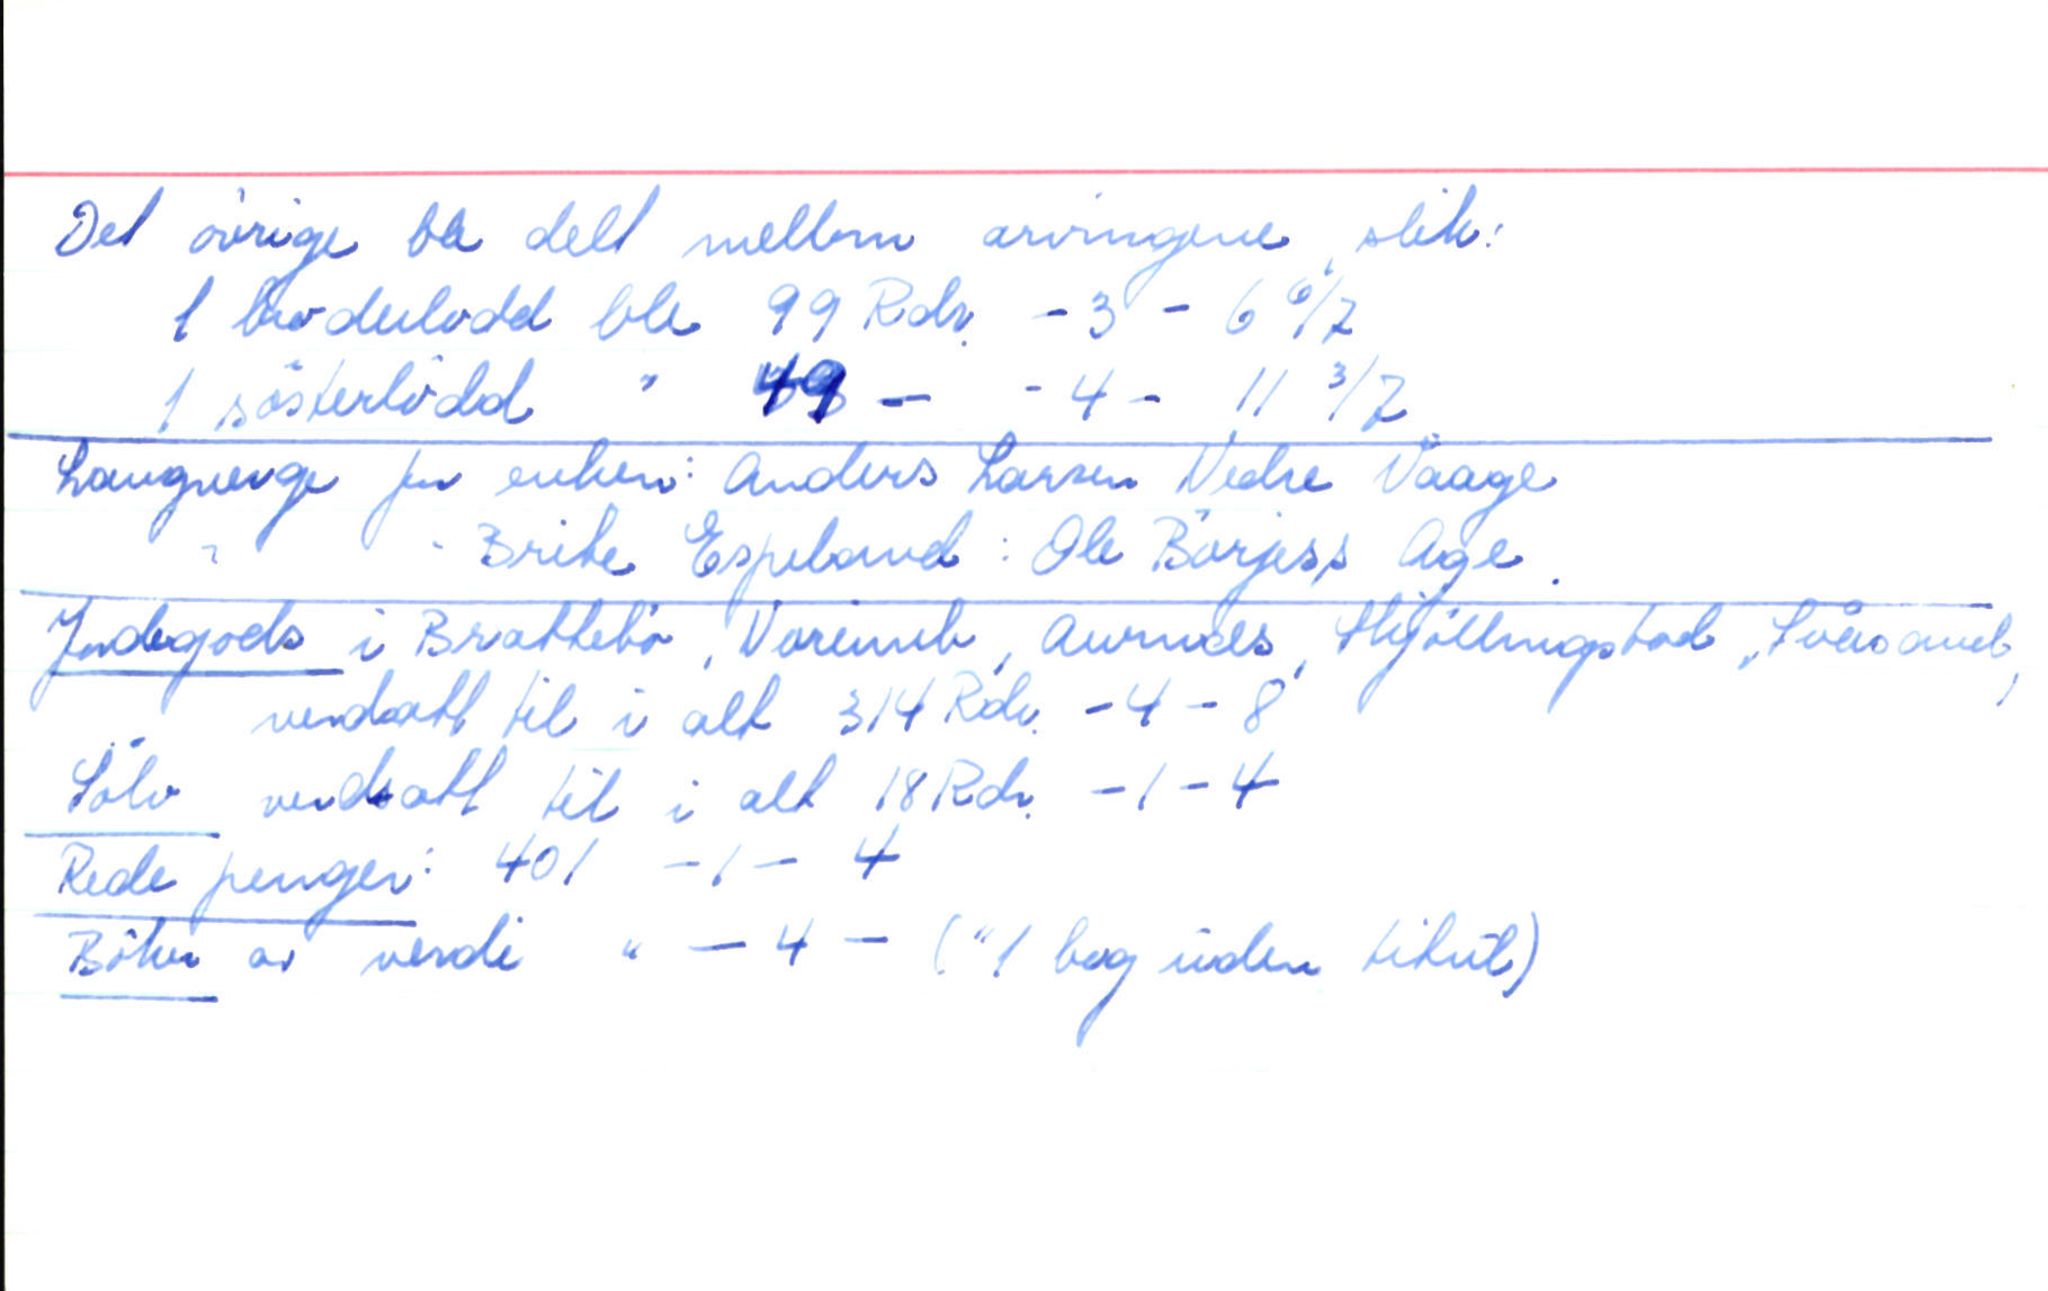 Det övrige ble delt mellom arvingene slik:
1 broderlodd ble 99 Rdr. - 3 - 6 6/7
1 sösterlodd " 49 - - 4 - 11 3/7
Laugverge for enken: Anders Larsen Nedre Vaage
" - Brite Espeland: Ole Börjess Age.
Jordegods i Brattebö, Vareimb, Aurnes, Skjöllingstad, Svåsand,
verdsatt til i alt 314 Rdr. - 4 - 8
Sölv verdsatt til i alt 18 Rdr. - 1 - 4
Rede penger: 401 - 1 - 4
Böker av verdi " - 4 - ("1 bog uden titul)